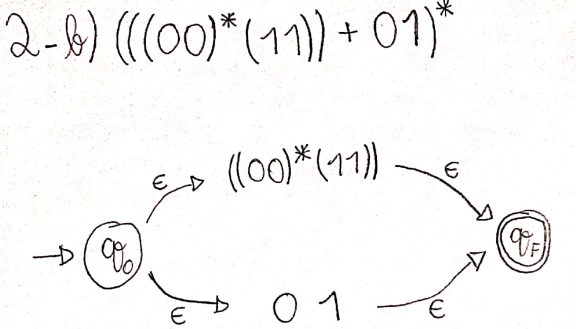 2-b) (((00)*(11)) + 01)*
ϵ ((00)*(11)) ϵ
q₀ q_F
ϵ 0 1 ϵ